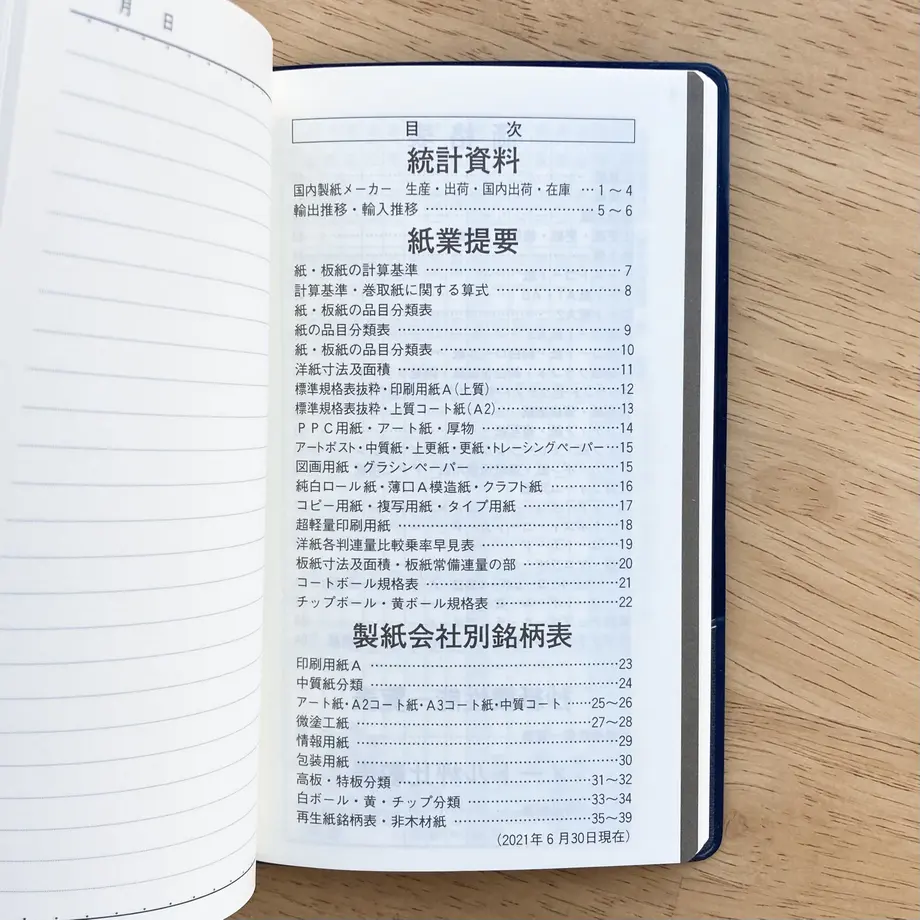 月 日
目 次
統計資料
国内製紙メーカー 生産・出荷・国内出荷・在庫 …1～4
輸出推移・輸入推移 ……………………………5～6
紙業提要
紙・板紙の計算基準 ……………………………7
計算基準・巻取紙に関する算式 ………………8
紙・板紙の品目分類表
紙の品目分類表 …………………………………9
紙・板紙の品目分類表 …………………………10
洋紙寸法及面積 …………………………………11
標準規格表抜粋・印刷用紙A(上質) ……………12
標準規格表抜粋・上質コート紙(A2)……………13
PPC用紙・アート紙・厚物 ……………………14
アートポスト・中質紙・上更紙・更紙・トレーシングペーパー…15
図画用紙・グラシンペーパー …………………15
純白ロール紙・薄口A模造紙・クラフト紙 ……16
コピー用紙・複写用紙・タイプ用紙 …………17
超軽量印刷用紙 …………………………………18
洋紙各判連量比較乗率早見表 …………………19
板紙寸法及面積・板紙常備連量の部 …………20
コートボール規格表 ……………………………21
チップボール・黄ボール規格表 ………………22
製紙会社別銘柄表
印刷用紙A ………………………………………23
中質紙分類 ………………………………………24
アート紙・A2コート紙・A3コート紙・中質コート ……25～26
微塗工紙 ……………………………………27～28
情報用紙 …………………………………………29
包装用紙 …………………………………………30
高板・特板分類 ……………………………31～32
白ボール・黄・チップ分類 ………………33～34
再生紙銘柄表・非木材紙 …………………35～39
(2021年6月30日現在)